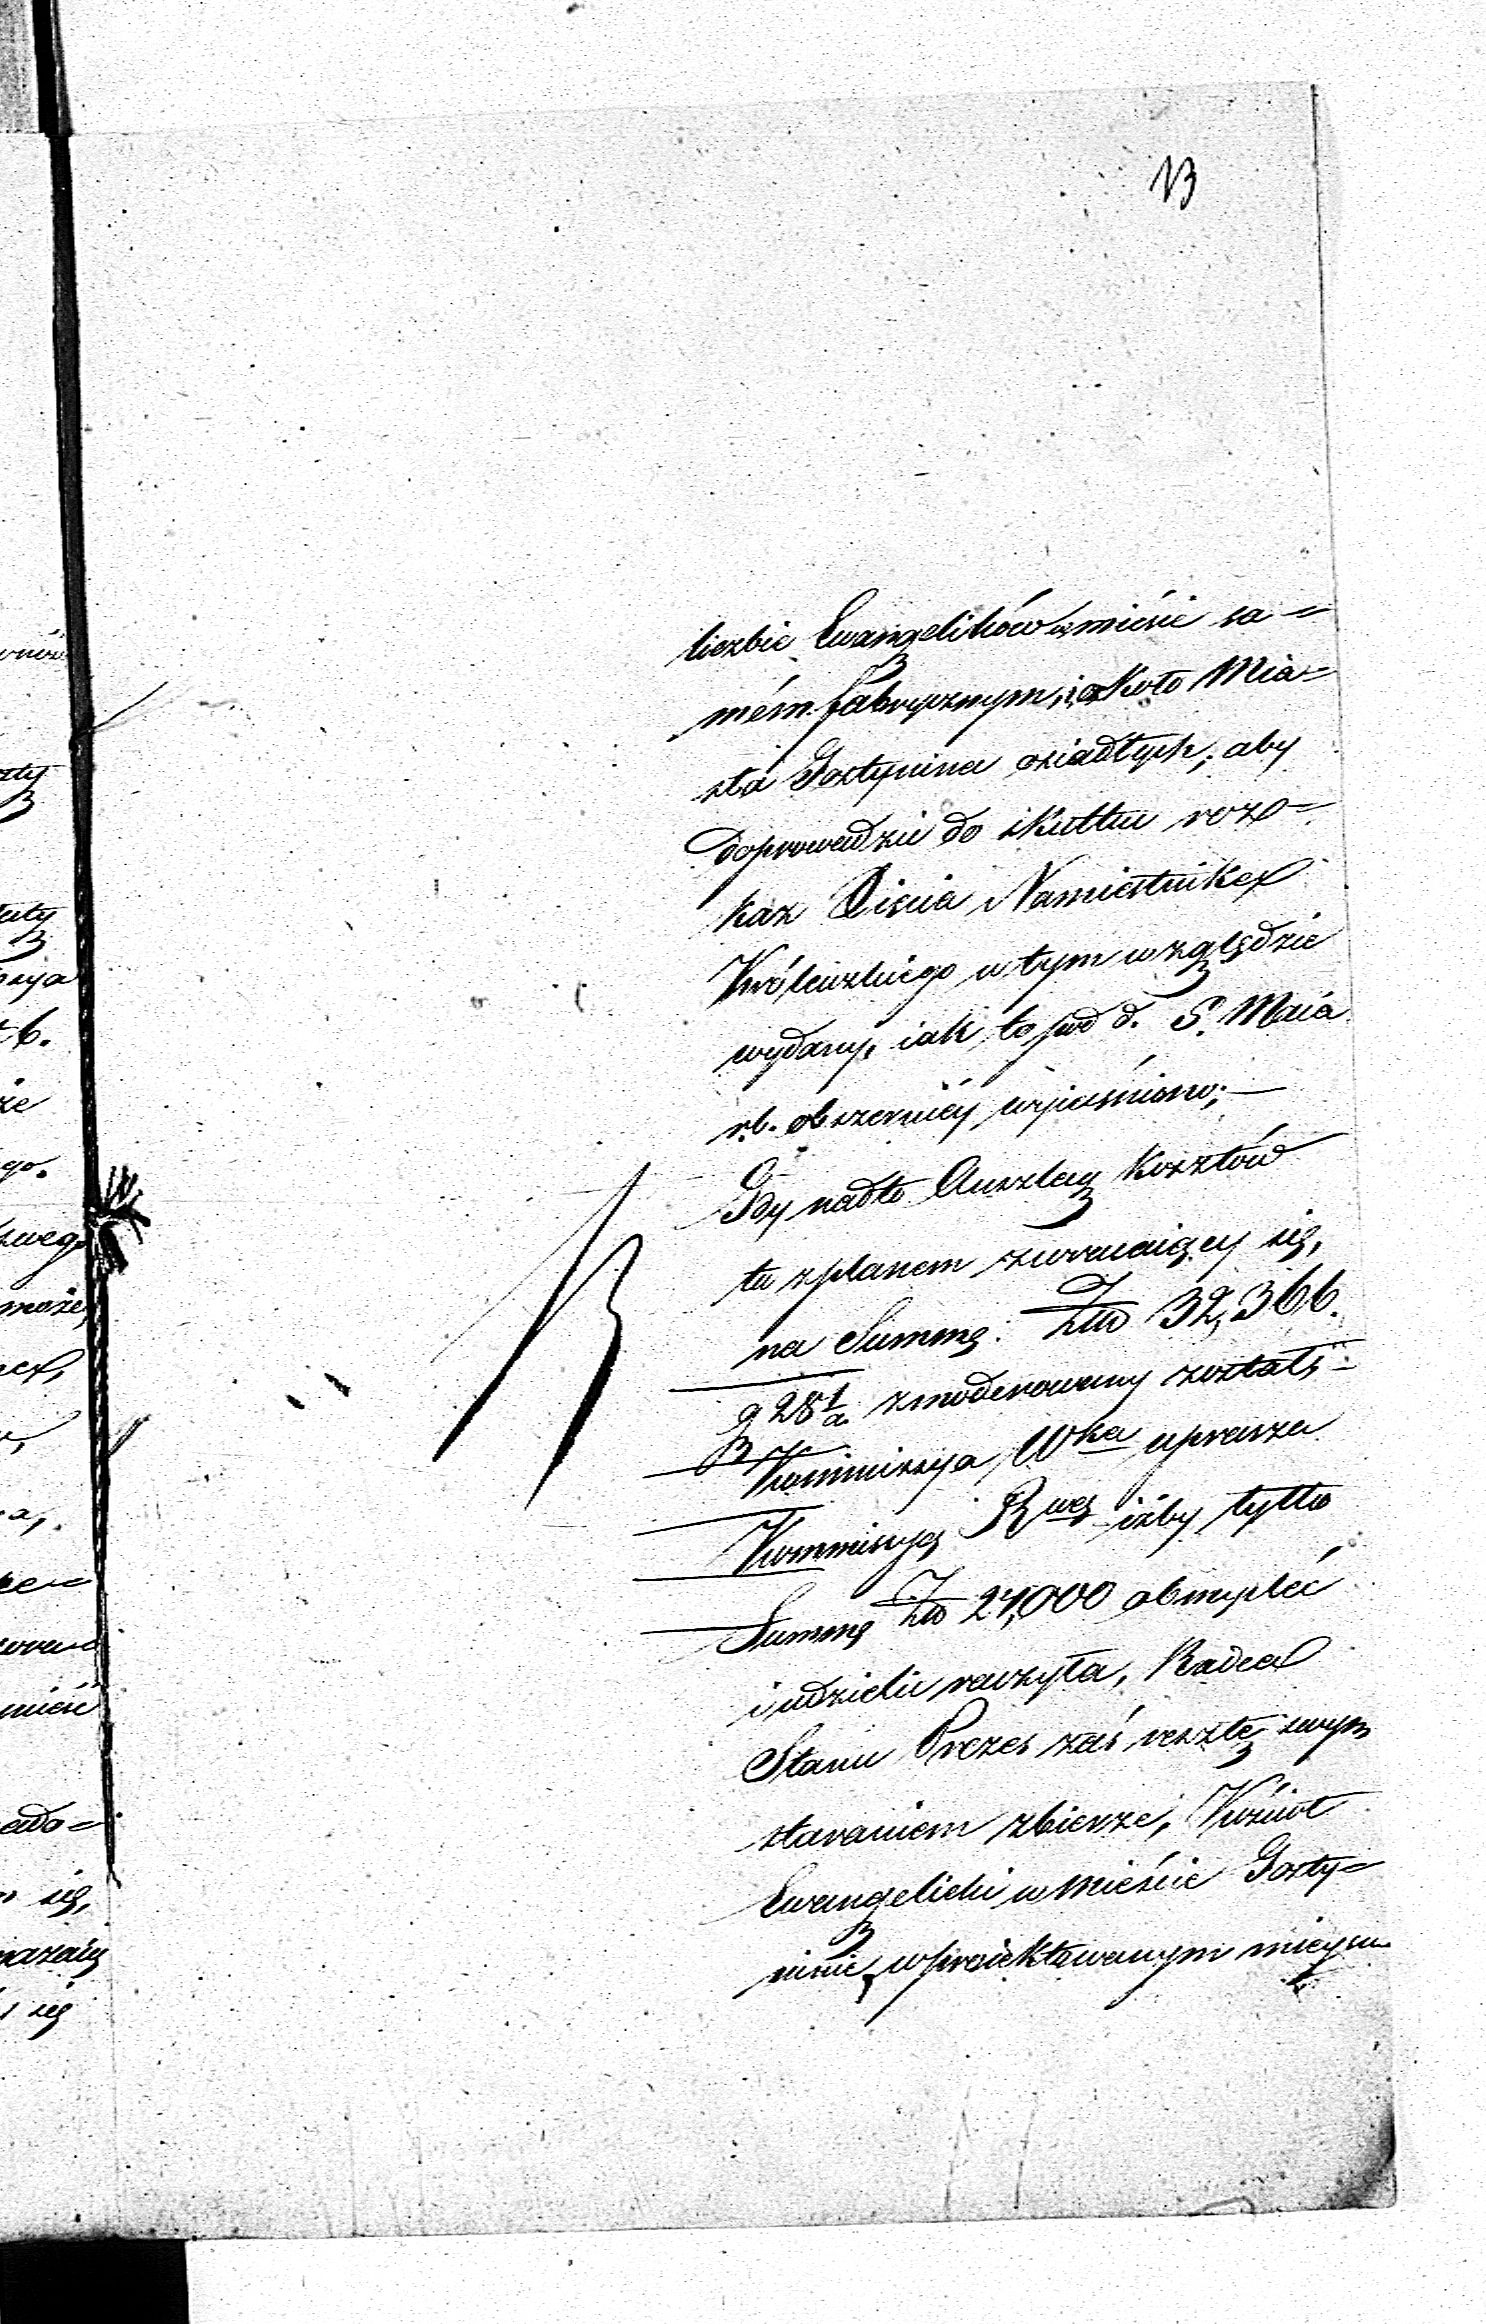 13
liczbie Ewangelików w mieście sa=
mém fabrycznym, i około Mia=
sta Gostynina osiadłych, aby
doprowadzić do skutku roz=
kaz Xięcia Namiestnika
Królewskiego w tym względzie
wydany, iak to pod d. 5. Maia
r.b. obszerniéy wyjaśniono;—
Gdy nadto Anszlag kosztów
tu z planem zwracaiący się,
na Summę Złt 32,366.
g 28½ zmoderowany został;
Kommissya Wka uprasza
Kommissyę Rwą iżby tylko
Summę Złt 27,000 obmyśleć
i udzielić raczyła, Radca
Stanu Prezes zaś resztę swym
staraniem zbierze, Kościół
Ewangelicki w mieście Gosty=
ninie, w proiektowanym mieyscu